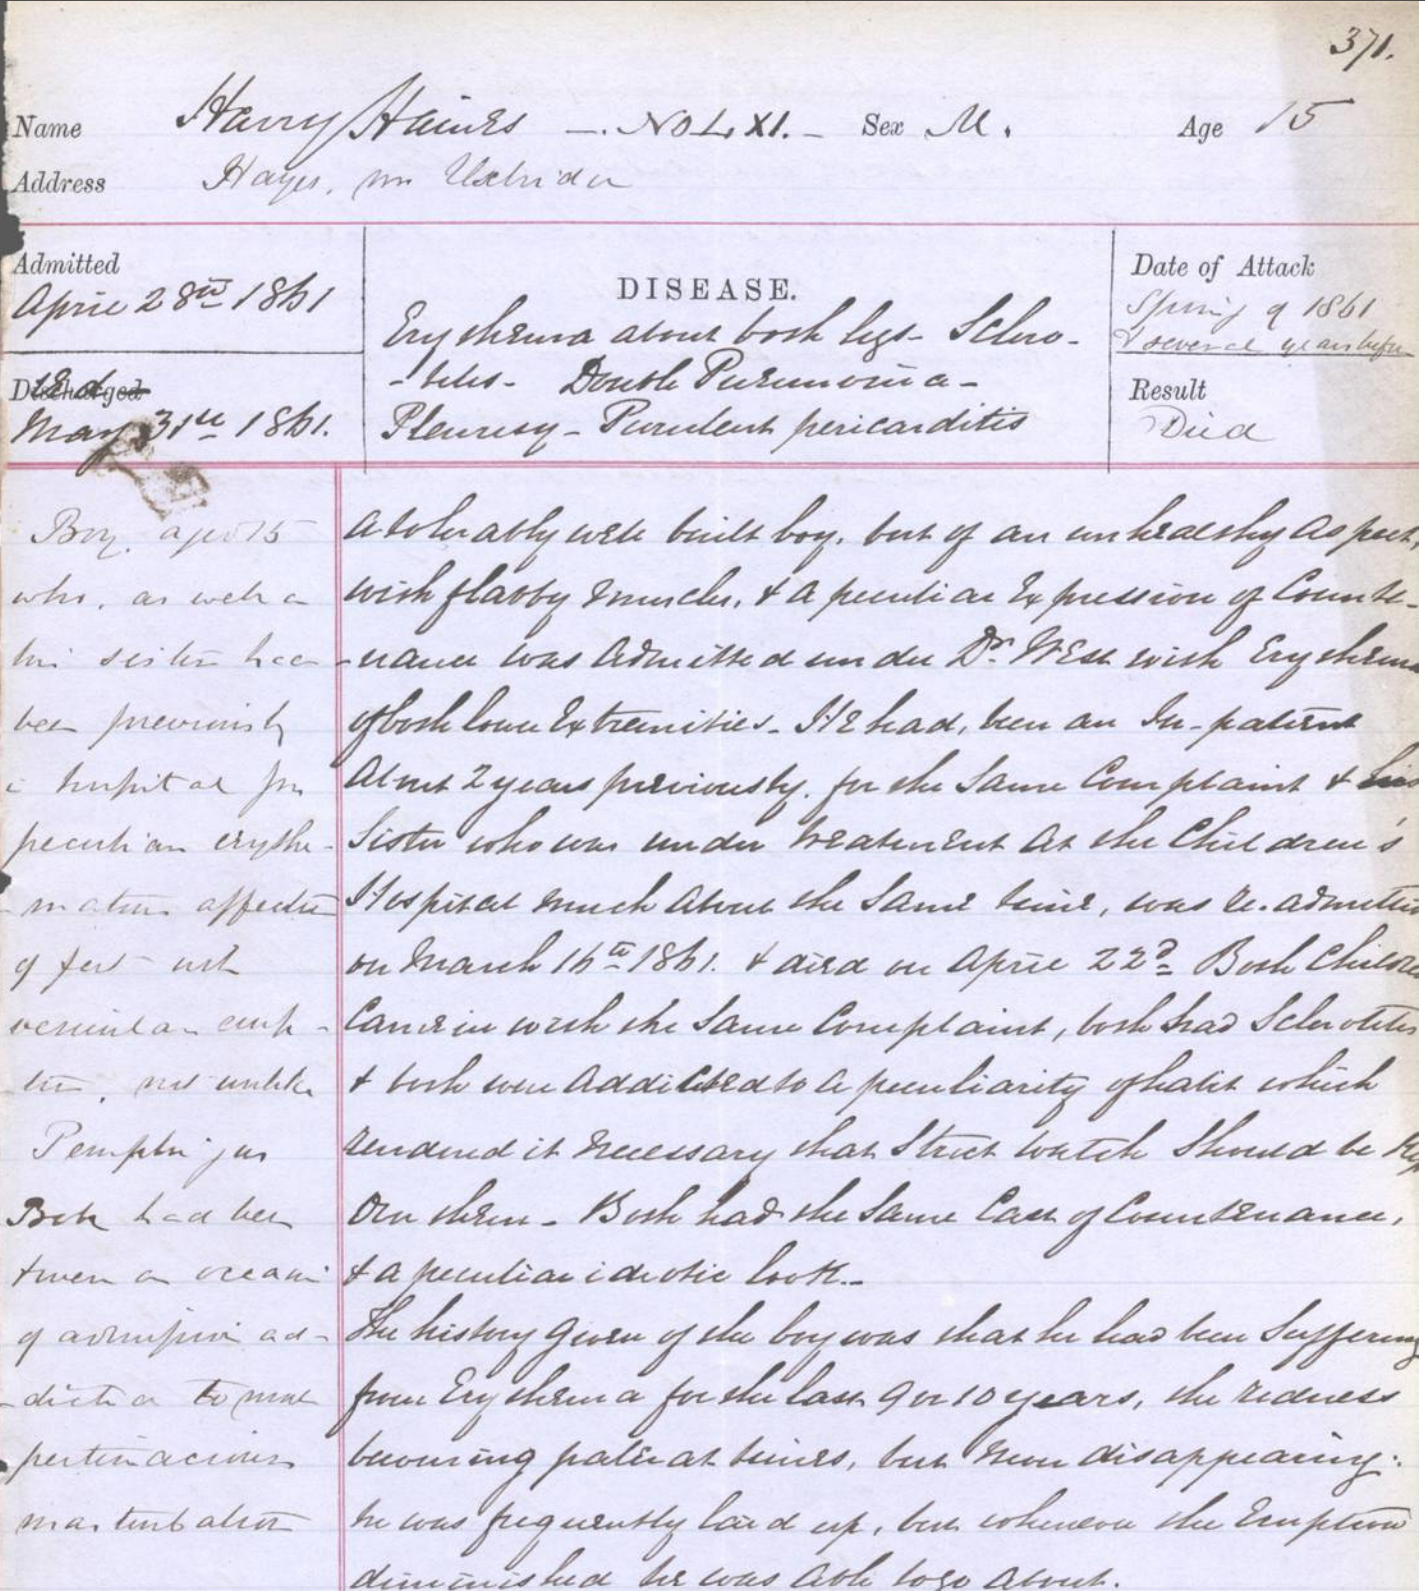 371.
Name Harry Haines —. No LXI. — Sex M. Age 15
Address Hayes, nr Uxbridge
Admitted
April 28th 1861
Discharged
Died
May 31st 1861.
DISEASE.
Erythema about both legs - Sclero-
-titis - Double Pneumonia -
Pleurisy - Purulent pericarditis
Date of Attack
Spring of 1861
& several years before
Result
Died
Boy. aged 15
who, as well as
his sister had
been previously
in hospital for
peculiar erythe-
-matous affection
of feet with
vesicular erup-
-tion, not unlike
Pemphigus
Both had been
& were on occasion
of admission ad-
-dicted to most
pertinacious
masturbation
A tolerably well built boy, but of an unhealthy aspect,
with flabby muscles, & a peculiar Expression of Counte-
-nance was admitted under Dr. West with Erythema
of both lower Extremities - He had, been an In-patient
about 2 years previously, for the Same Complaint & his
Sister who was under treatment at the Children's
Hospital much about the Same time, was re-admitted
on March 16th 1861. & died on April 22d Both Children
Came in with the Same Complaint, both had Sclerotitis
& both were Addicted to a peculiarity of habit which
rendered it necessary that Strict watch Should be kept
over them - Both had the Same Cast of Countenance,
& a peculiar idiotic look. -
The history given of the boy was that he had been Suffering
from Erythema for the last 9 or 10 years, the redness
becoming paler at times, but never disappearing.
he was frequently laid up, but whenever the Eruption
diminished he was able to go about.